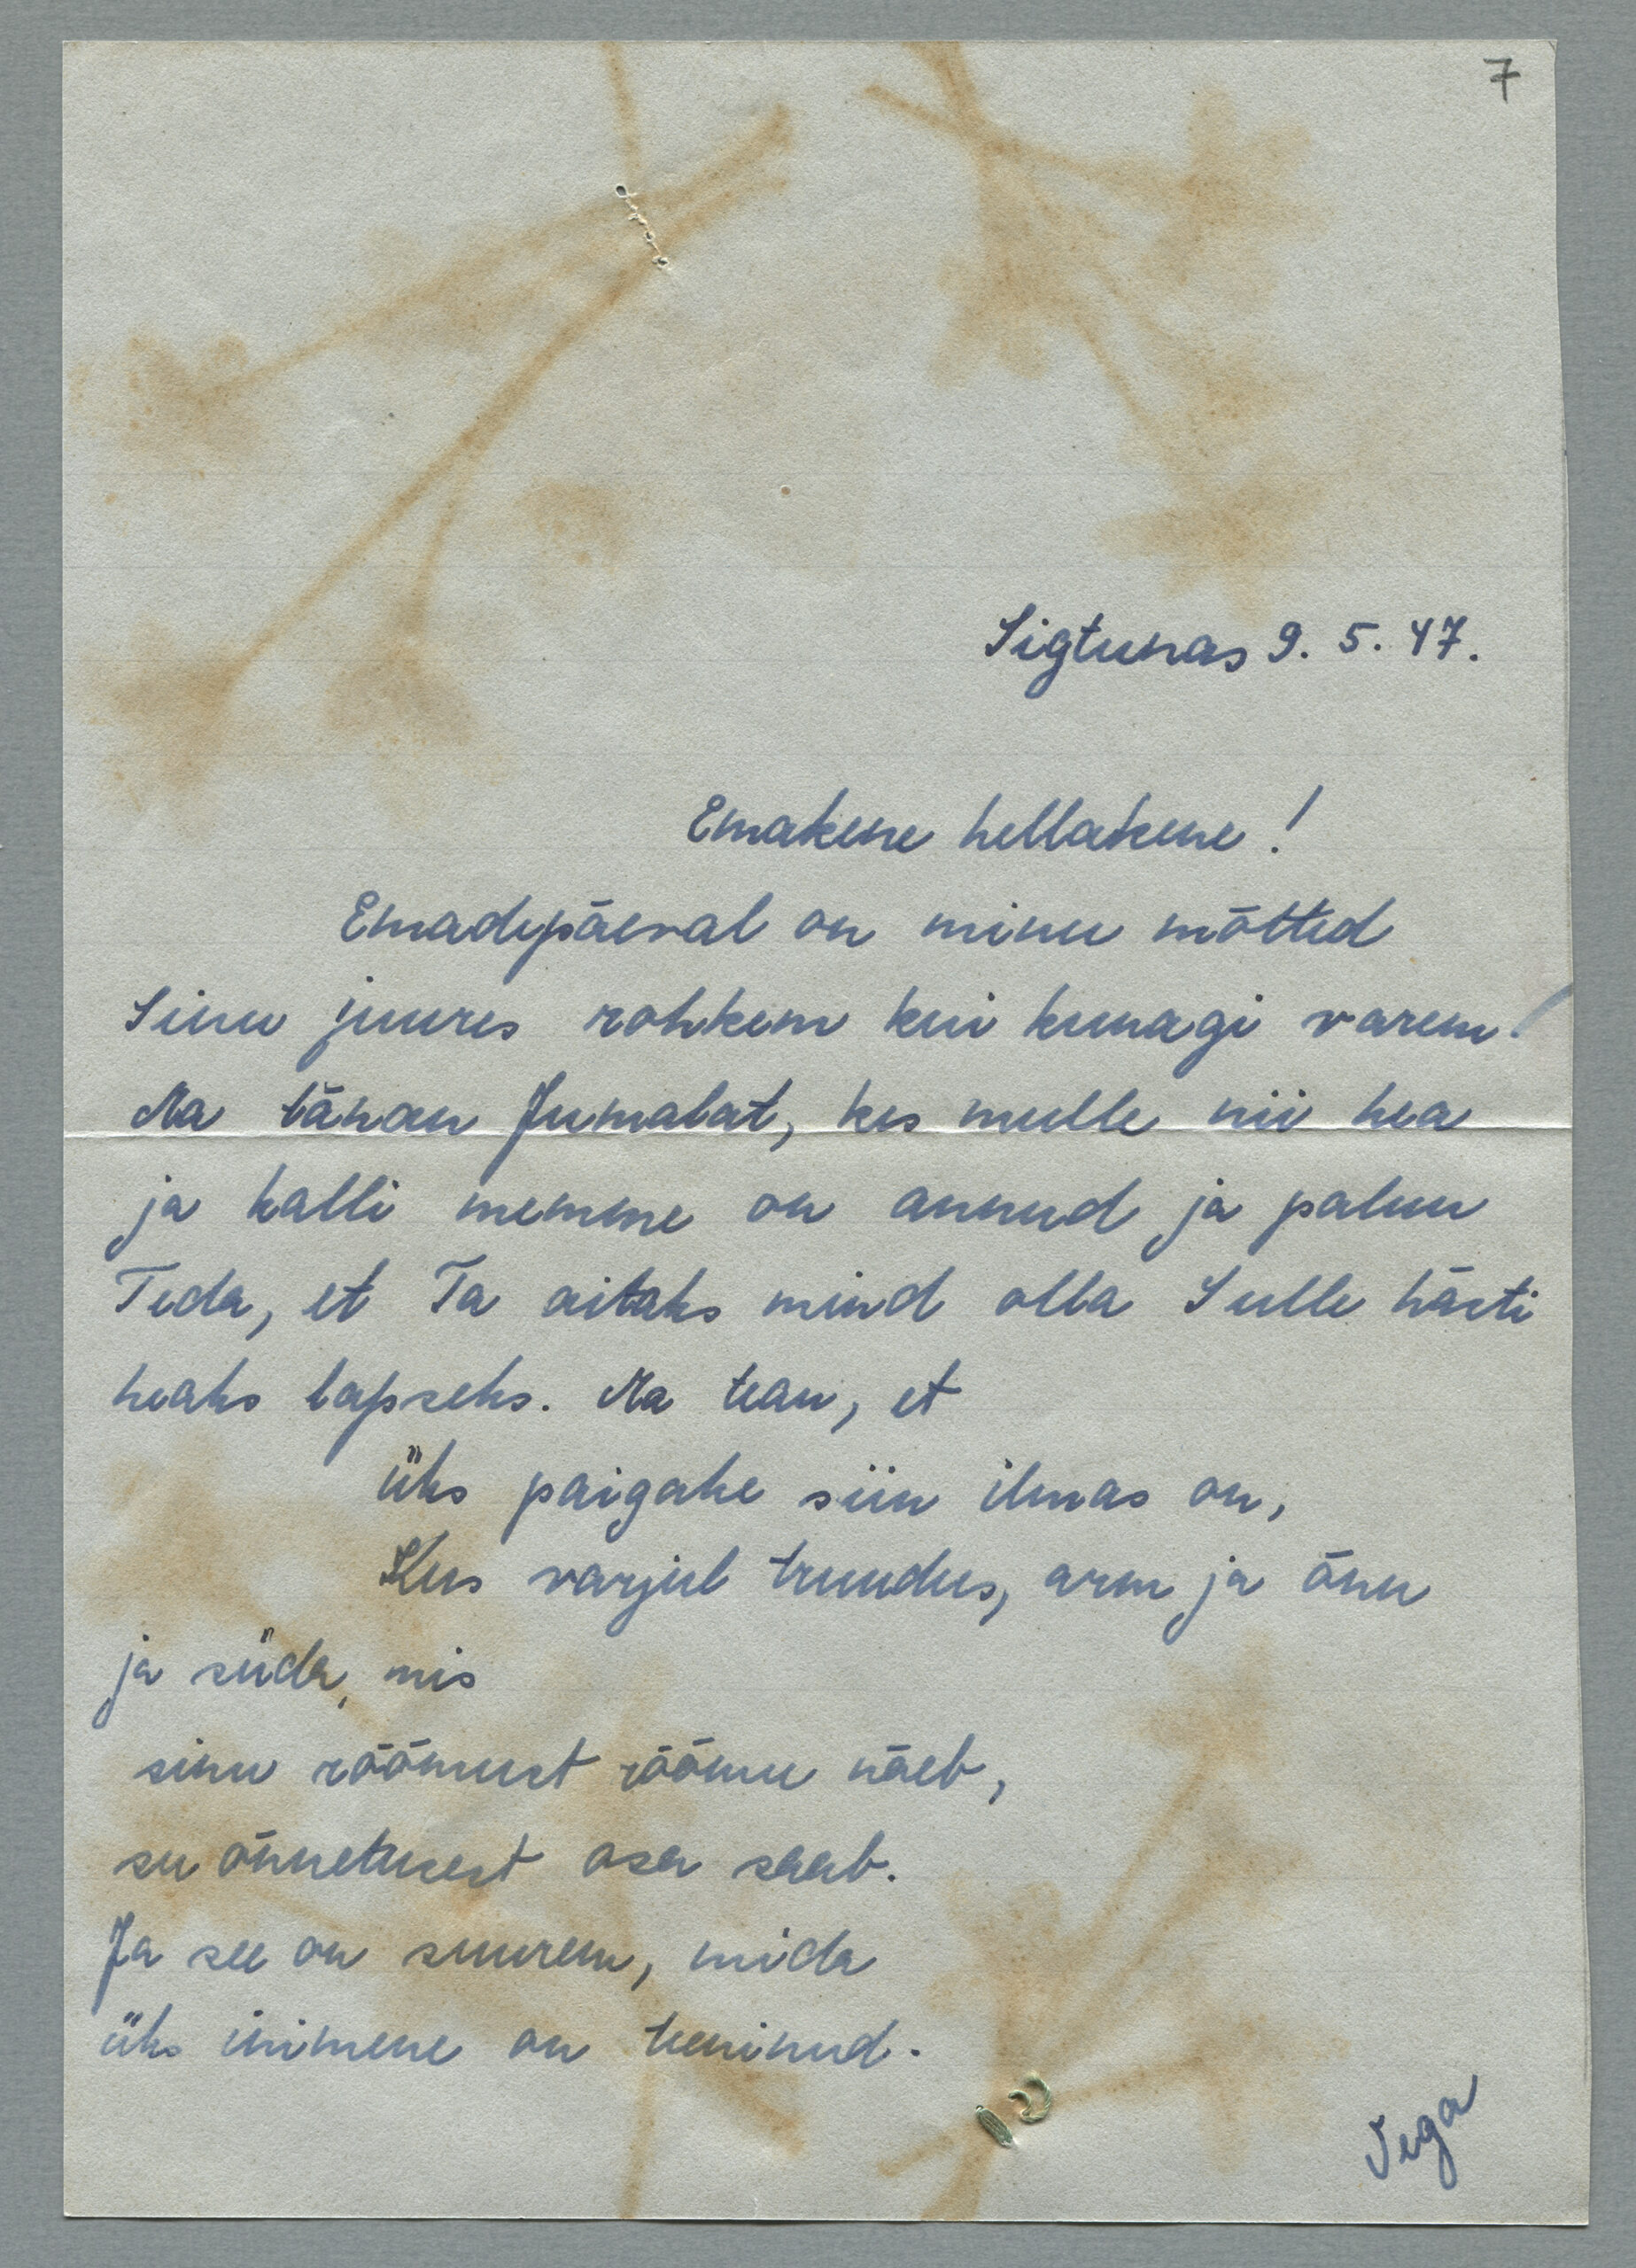 7
Sigtunas 9. 5. 47.
Emakene hellakene!
Emadepäeval on minu mõtted
Sinu juures rohkem kui kunagi varem!
Ma tänan Jumalat, kes mulle nii hea
ja kalli memme on annud ja palun
Teda, et Ta aitaks mind olla Sulle hästi
heaks lapseks. Ma tean, et
üks paigake siin ilmas on,
Kus varjul truudus, arm ja õnn
ja süda, mis
sinu rõõmust rõõmu näeb,
su õnnetusest osa saab.
Ja see on suurem, mida
üks inimene on teeninud.
Vega